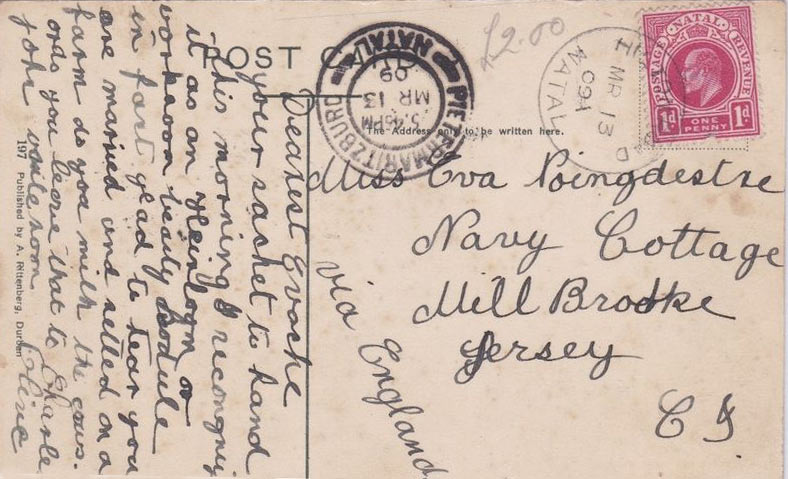 POST CA
The Address only to be written here.
£2.00
PIETERMARITZBURG
5.45 PM
MR 13
09
NATAL
MR 13
09
NATAL
POSTAGE NATAL REVENUE
1d ONE PENNY 1d
Miss Eva Poingdestre
Navy Cottage
Mill Brooke
Jersey
C I
via England
Dearest Evache
your sachet to hand
this morning I recongnise
it as an
beauty
in fact glad to hear you
are married and settled on a
farm do you milk the cows.
or do you leave that to Charle
john write soon
197 Published by A. Rittenberg, Durban